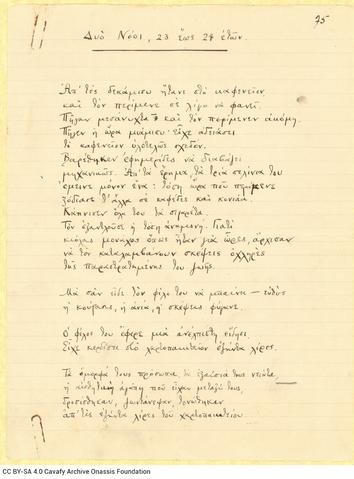 75
Δυὸ Νέοι, 23 ἕως 24 ἐτῶν.
Ἀπ' τὲς δεκάμισυ ἤτανε στὸ καφενεῖον
καὶ τὸν περίμενε σὲ λίγο νὰ φανεῖ.
Πῆγαν μεσάνυχτα καὶ τὸν περίμενεν ἀκόμη.
Πῆγεν ἡ ὥρα μιάμισυ· εἶχε ἀδειάσει
τὸ καφενεῖον ὁλοτελῶς σχεδόν.
Βαρέθηκεν ἐφημερίδες νὰ διαβάζει
μηχανικῶς. Ἀπ' τὰ ἔρημα, τὰ τρία σελίνια του
ἔμεινε μόνον ἕνα: τόση ὥρα ποὺ περίμενε
ξόδιασε τ' ἄλλα σὲ καφέδες καὶ κονιάκ.
Κάπνισεν ὅλα του τὰ σιγαρέτα.
Τὸν ἐξαντλοῦσε ἡ τόση ἀναμονή. Γιατὶ
κιόλας μονάχος ὅπως ἦταν γιὰ ὧρες, ἄρχισαν
νὰ τὸν καταλαμβάνουν σκέψεις ὀχληρὲς
τῆς παραστρατημένης του ζωῆς.
Μὰ σὰν εἶδε τὸν φίλο του νὰ μπαίνει — εὐθὺς
ἡ κούρασις, ἡ ἀνία, ἡ σκέψεις φύγανε.
Ὁ φίλος του ἔφερε μιὰ ἀνέλπιστη εἴδησι.
Εἶχε κερδίσει στὸ χαρτοπαικτεῖον ἑξήντα λίρες.
Τὰ ὄμορφά τους πρόσωπα, τὰ ἐξαίσιά τους νειάτα,
ἡ αἰσθητικὴ ἀγάπη ποὺ εἶχαν μεταξύ τους,
δροσίσθηκαν, ζωντάνεψαν, τονώθηκαν
ἀπ' τὲς ἑξήντα λίρες τοῦ χαρτοπαικτείου.
CC BY-SA 4.0 Cavafy Archive Onassis Foundation